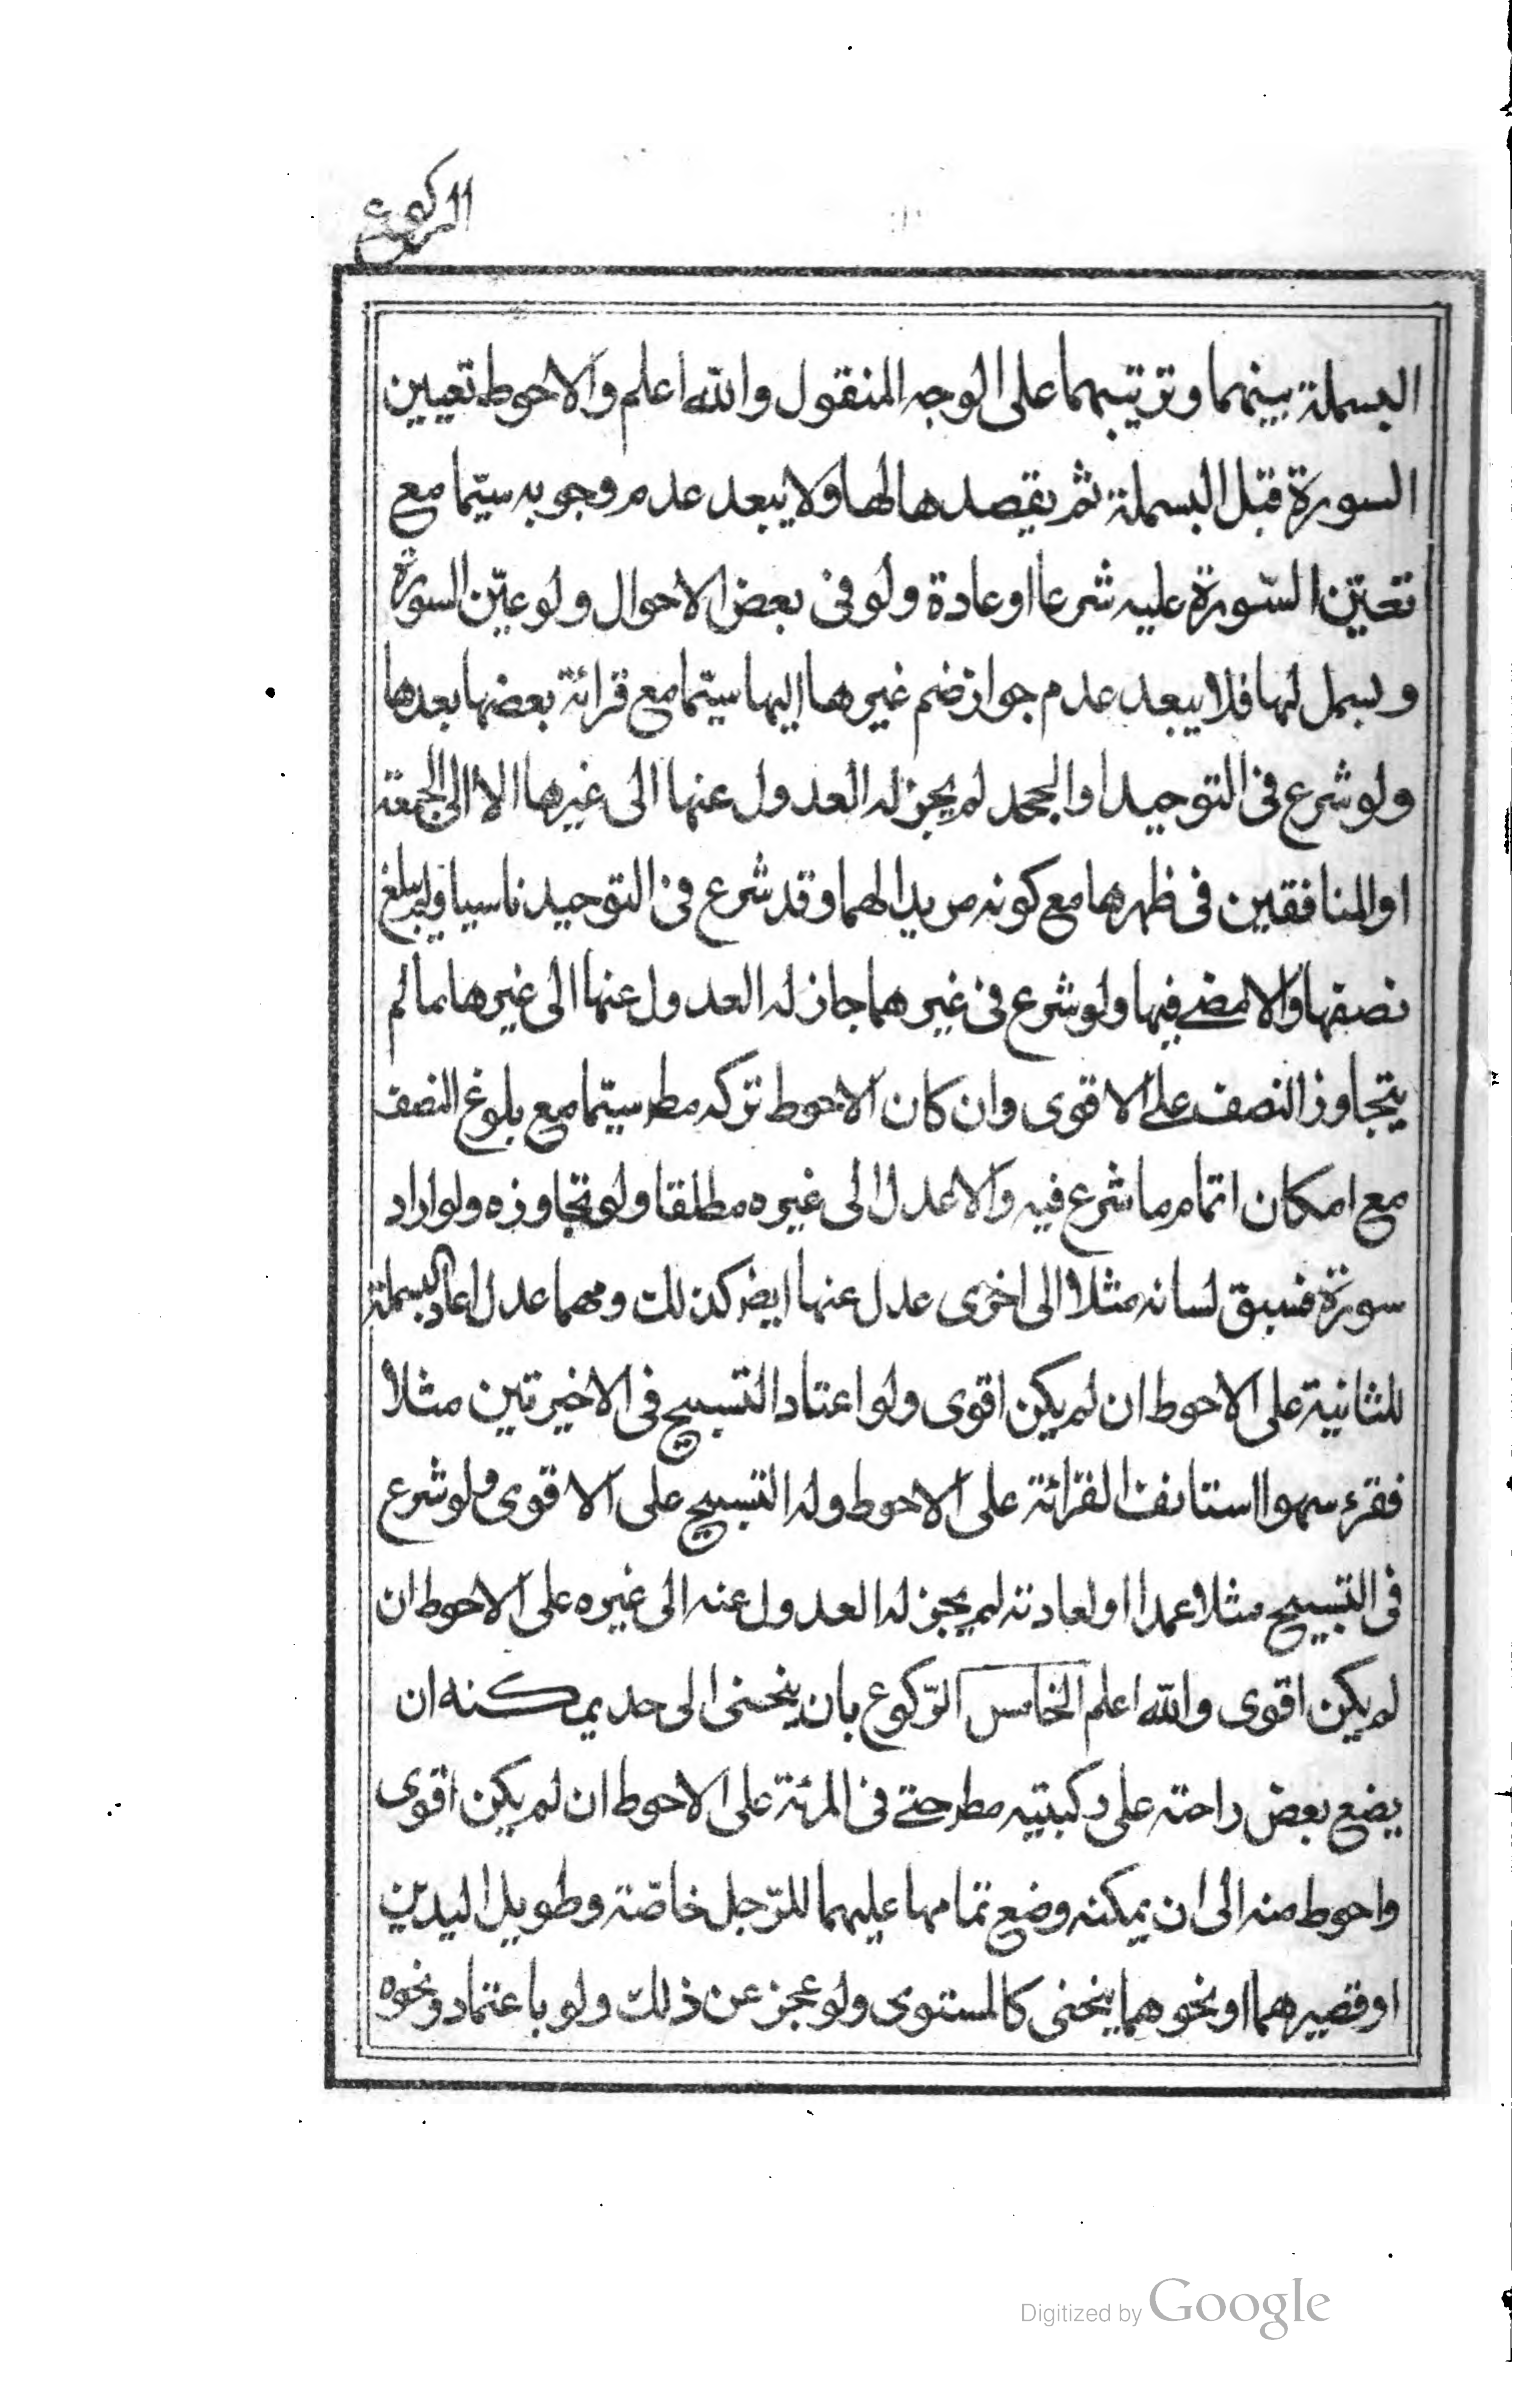 الركوع
البسملة بينهما وترتيبهما على الوجه المنقول والله اعلم والاحوط تعيين
السورة قبل البسملة ثم يقصدها لها ولا يبعد عدم وجوبه سيّما مع
تعيّن السّورة عليه شرعا او عادة ولو فى بعض الاحوال ولو عيّن السورة
وبسمل لها فلا يبعد عدم جواز ضم غيرها اليها سيّما مع قرائة بعضها بعدها
ولو شرع فى التوحيد او الجحد لم يجز له العدول عنها الى غيرها الا الى الجمعة
او المنافقين فى ظهرها مع كونه مريدا لهما وقد شرع فى التوحيد ناسيا ولم يبلغ
نصفها والا مضى فيها ولو شرع فى غيرهما جاز له العدول عنها الى غيرها ما لم
يتجاوز النصف على الاقوى وان كان الاحوط تركه مط سيّما مع بلوغ النصف
مع امكان اتمام ما شرع فيه والا عدل الى غيره مطلقا ولو تجاوزه ولو اراد
سورة فسبق لسانه مثلا الى اخرى عدل عنها ايض كذلك ومهما عدل اعاد البسملة
للثانية على الاحوط ان لم يكن اقوى ولو اعتاد التسبيح فى الاخيرتين مثلا
فقرء سهوا استانف القرائة على الاحوط وله التسبيح على الاقوى ولو شرع
فى التسبيح مثلا عمدا او لعادته لم يجز له العدول عنه الى غيره على الاحوط ان
لم يكن اقوى والله اعلم الخامس الرّكوع بان ينحنى الى حد يمكنه ان
يضع بعض راحته على ركبتيه مط حتى فى المرئة على الاحوط ان لم يكن اقوى
واحوط منه الى ان يمكنه وضع تمامها عليهما للرّجل خاصّة وطويل اليدين
او قصيرهما او نحوهما ينحنى كالمستوى ولو عجز عن ذلك ولو باعتماد ونحوه
Digitized by Google